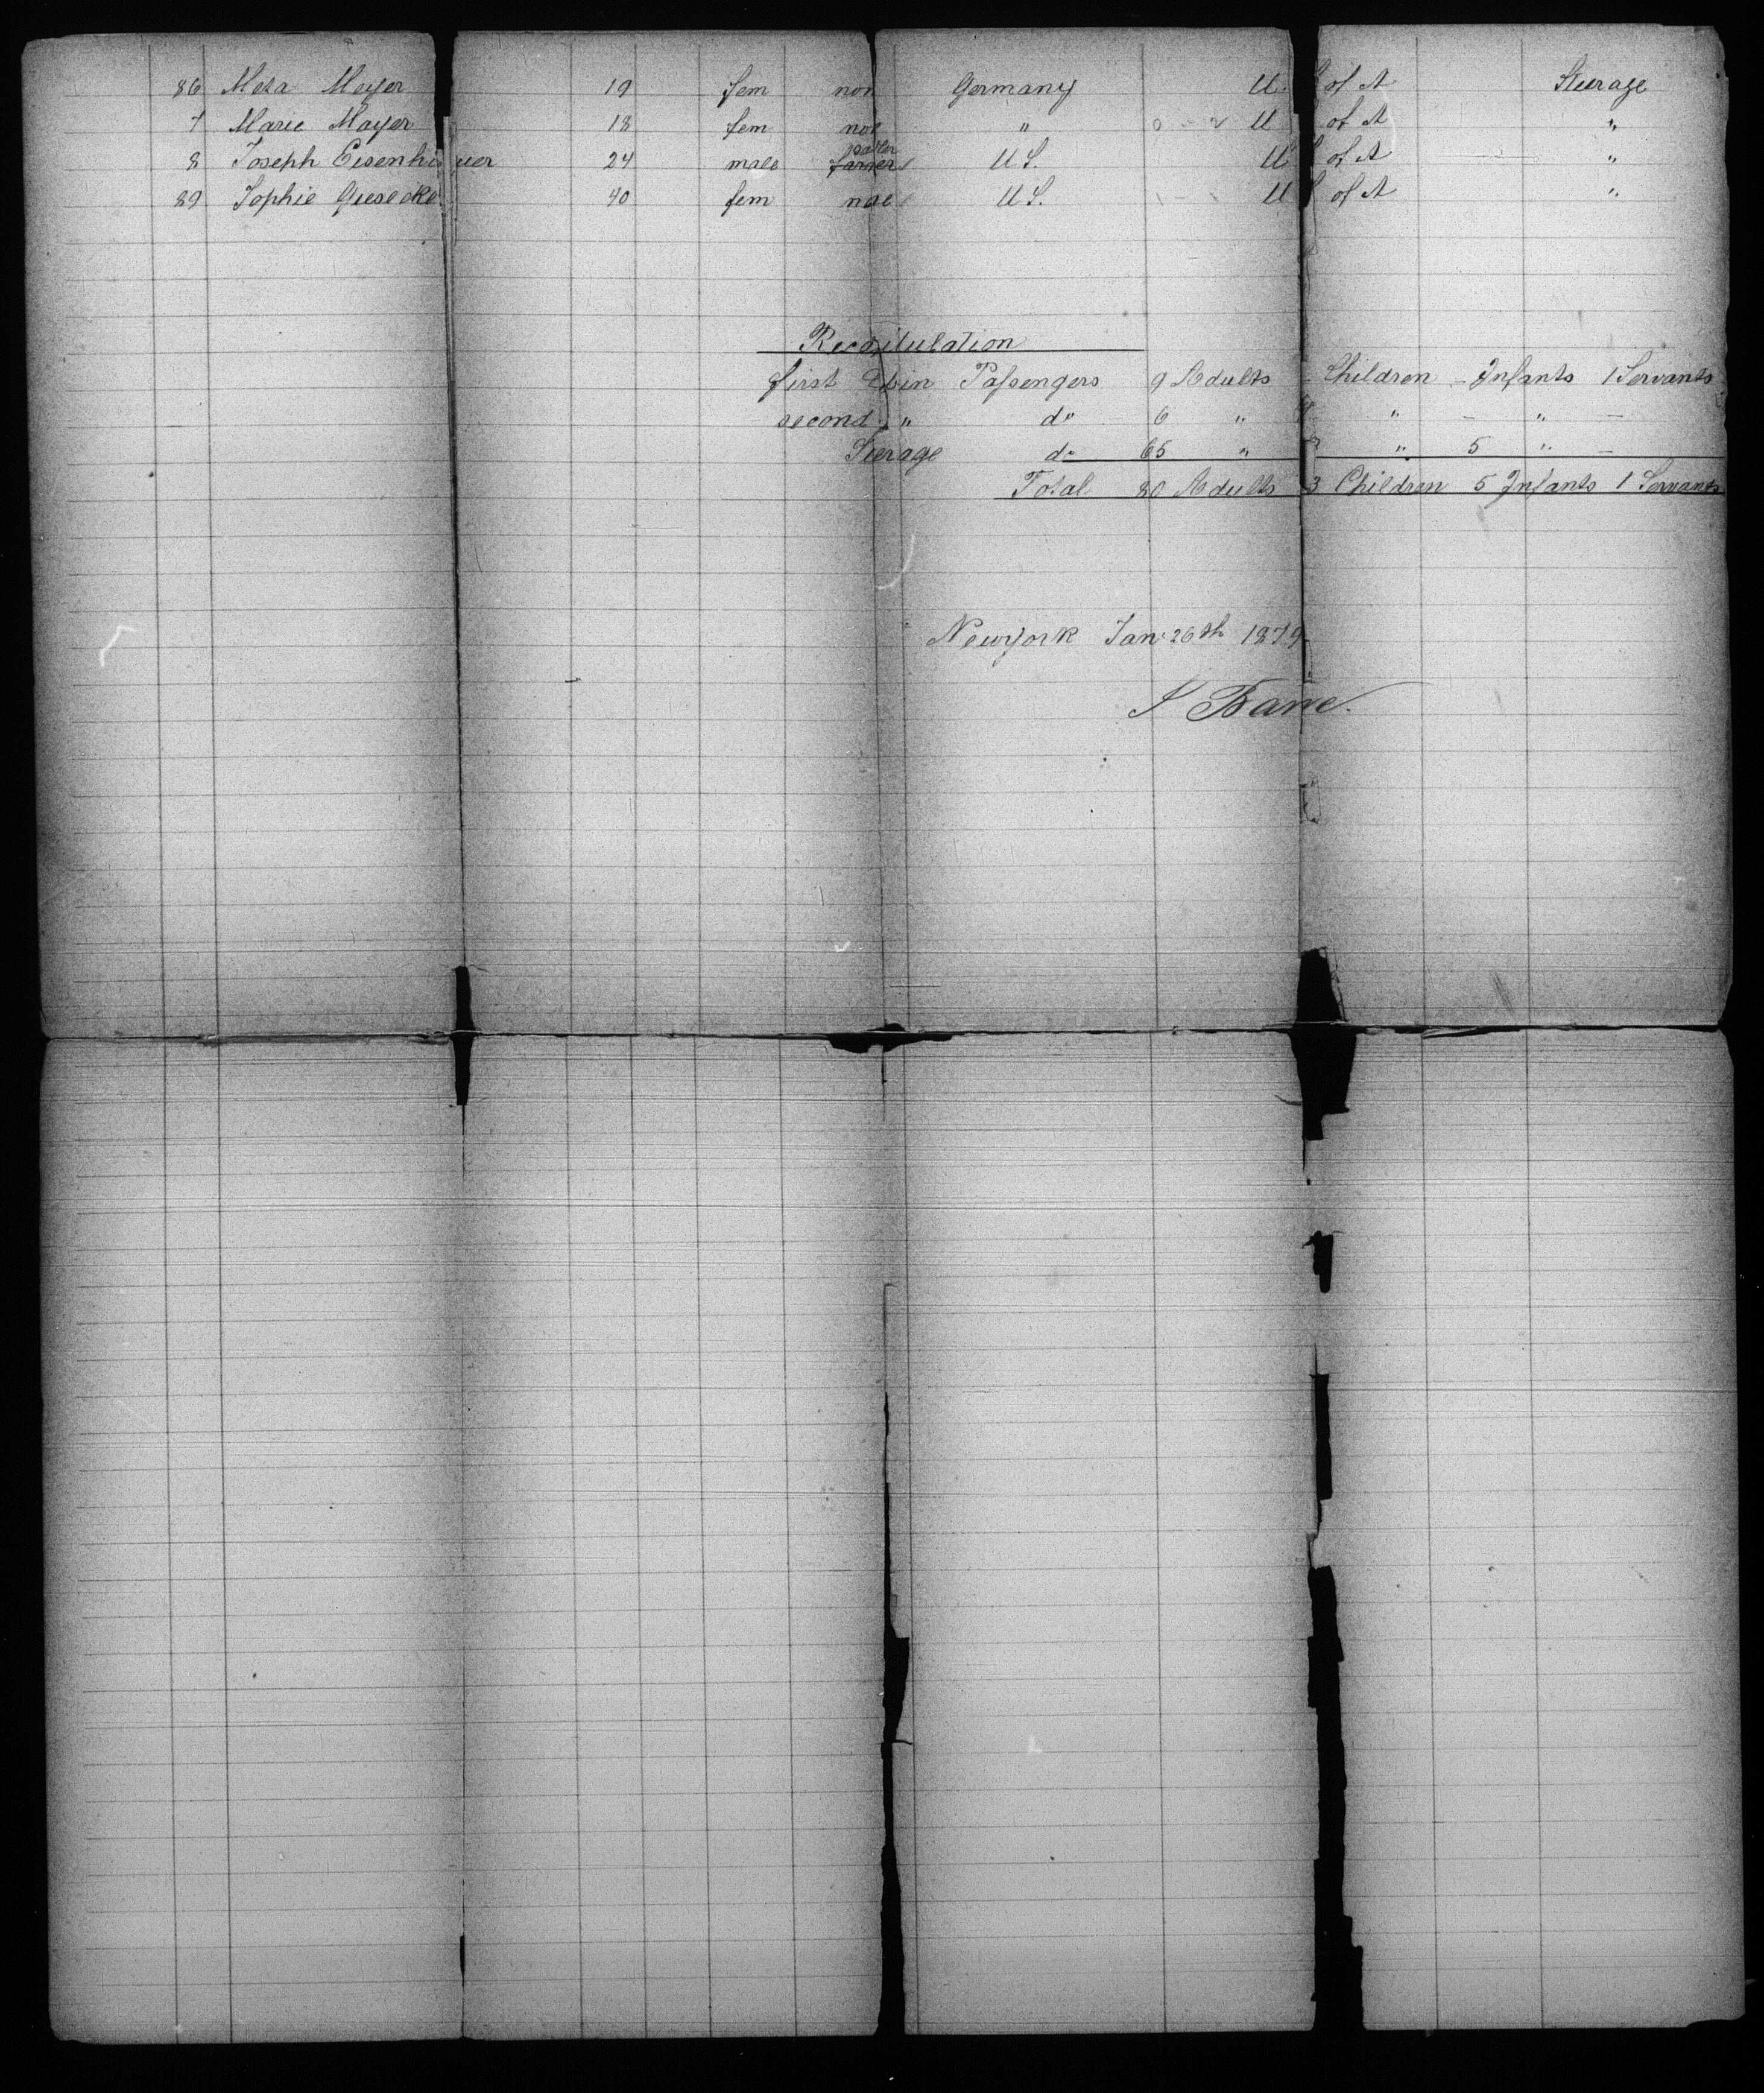 86 Meta Meyer 19 fem non Germany U. S of A Steerage
7 Marie Mayer 18 fem non " U S of A "
8 Joseph Eisenhauer 24 male farmer U S. U S of A "
89 Sophie Giesecke 40 fem non U S. U S of A "
Recapitulation
first Cabin Passengers 9 Adults - Children - Infants 1 Servants
second " do 6 " " - " -
Steerage do 65 " " 5 " -
Total 80 Adults 3 Children 5 Infants 1 Servants
Newyork Jan. 26th 1879